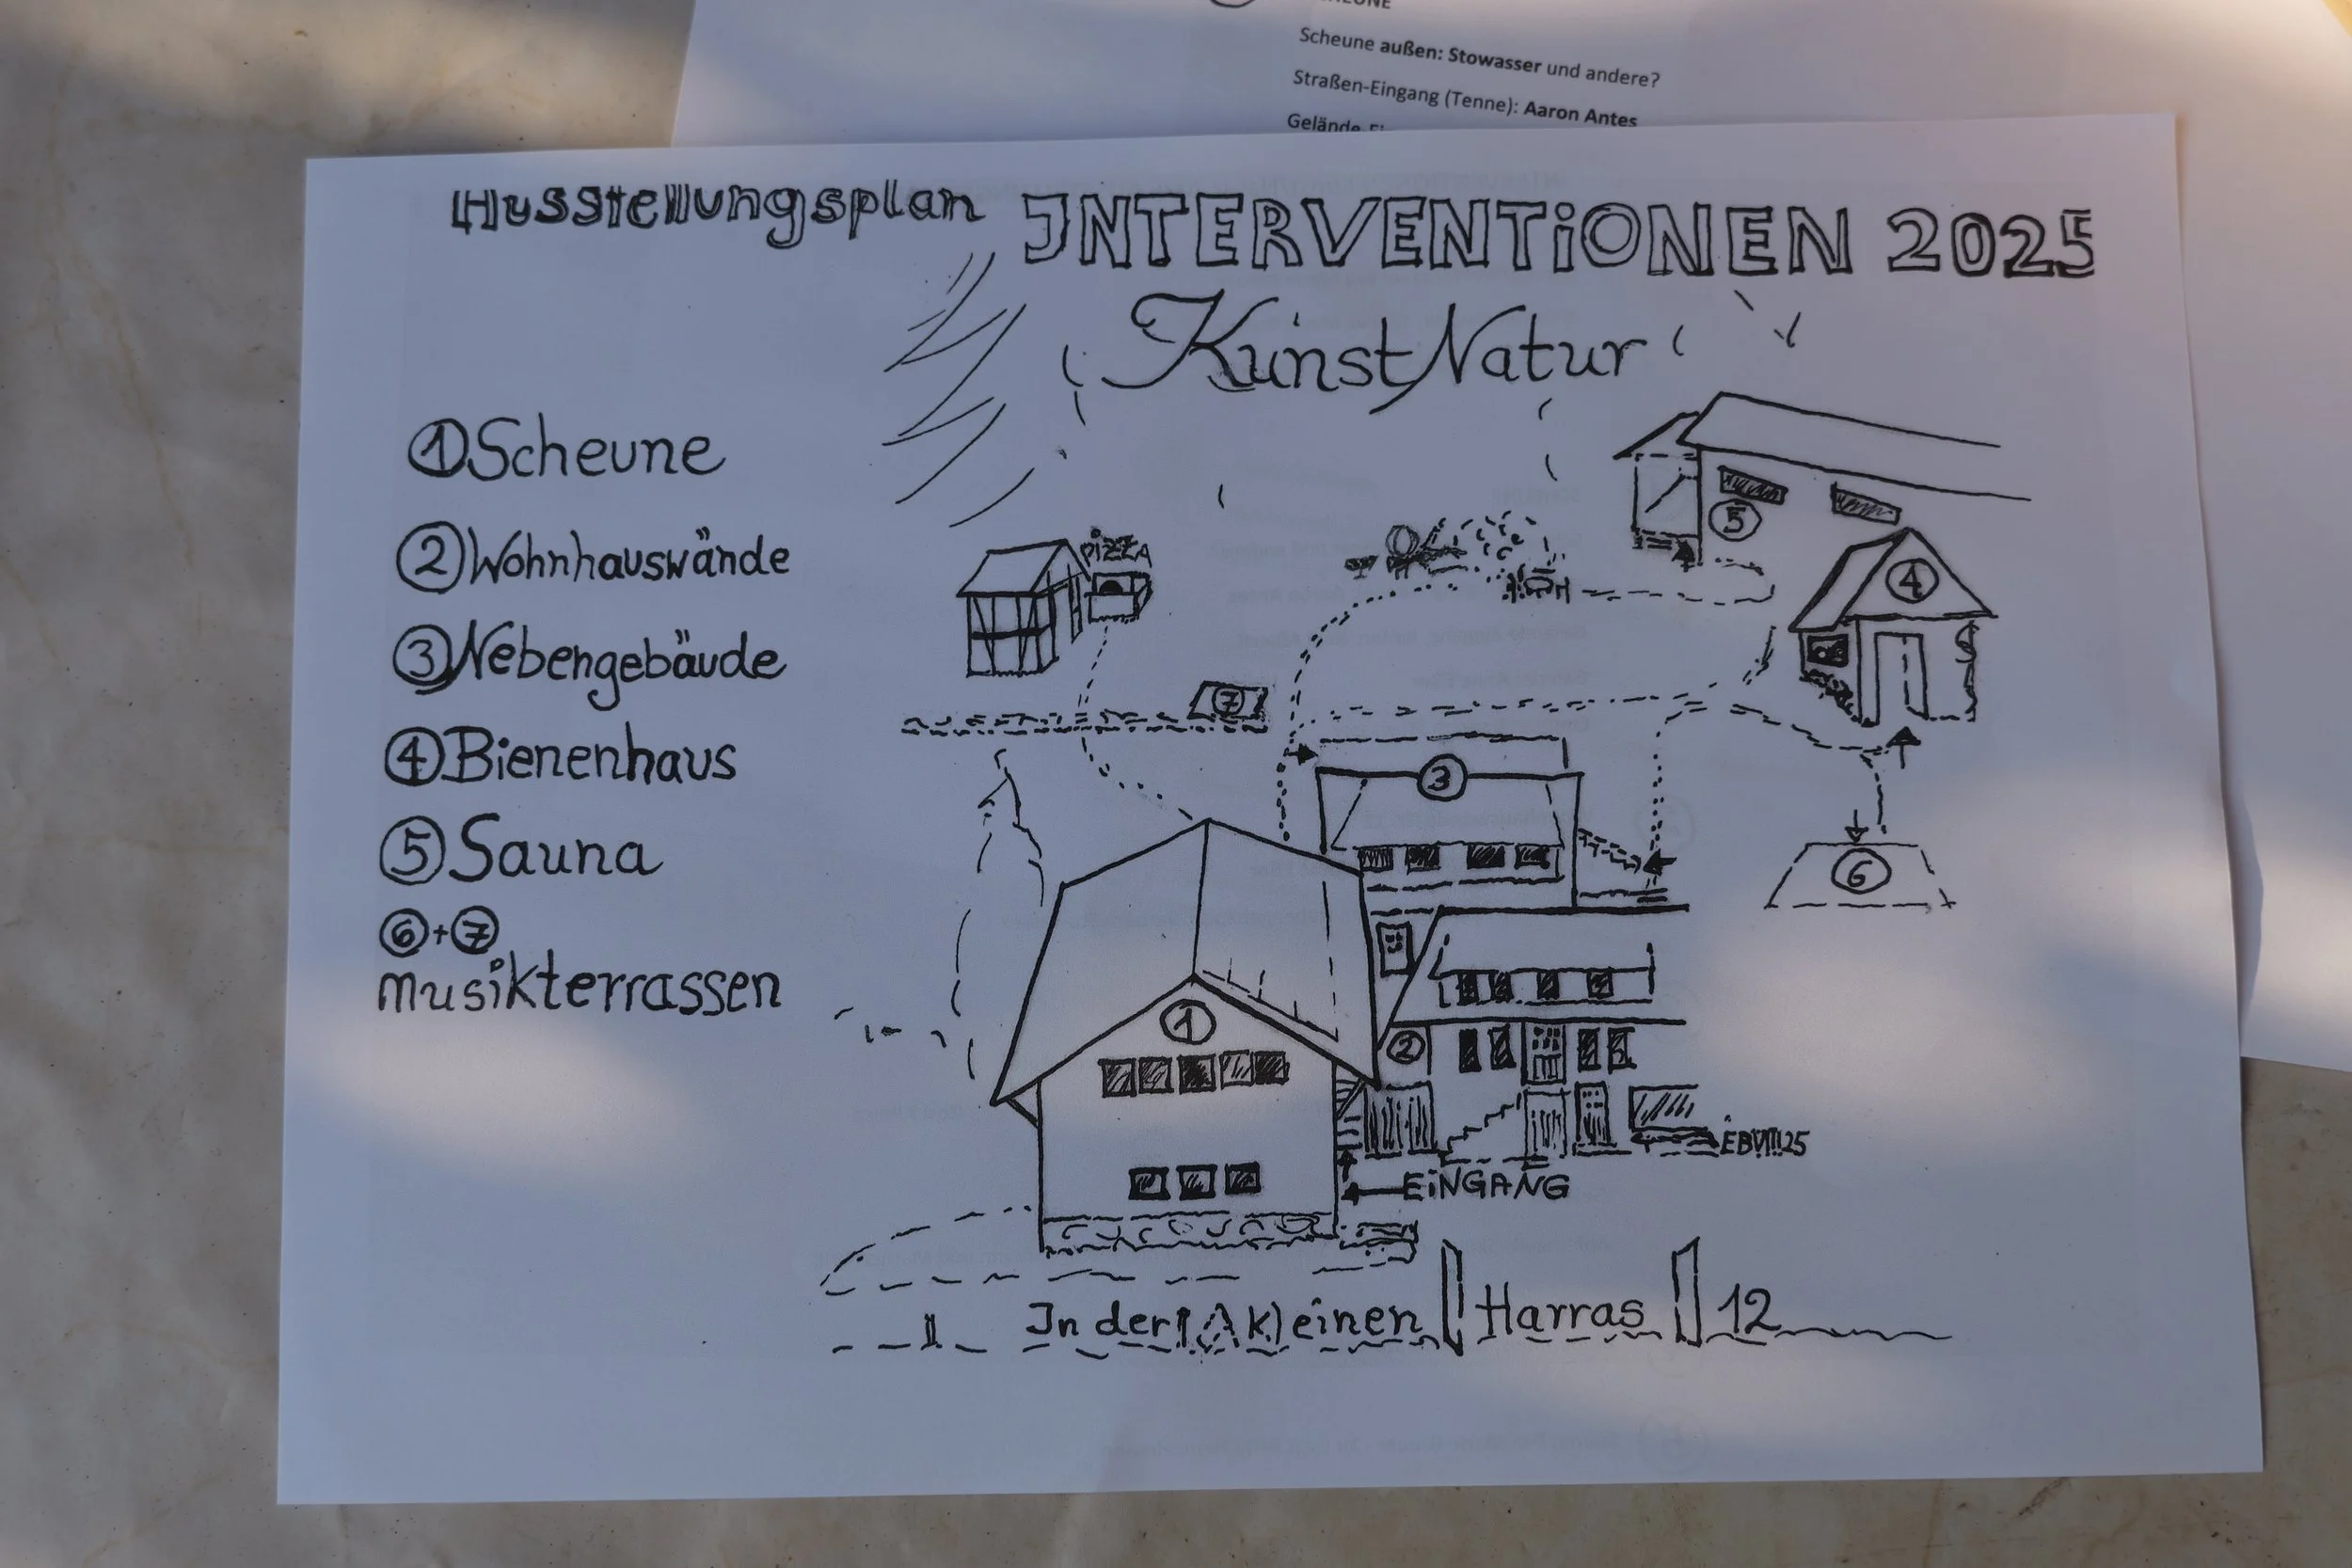 Scheune außen: Stowasser und andere?
Straßen-Eingang (Tenne): Aaron Antes
Ausstellungsplan INTERVENTiONEN 2025
KunstNatur
① Scheune
② Wohnhauswände
③ Nebengebäude
④ Bienenhaus
⑤ Sauna
⑥+⑦
Musikterrassen
PiZZA
⑤
④
⑦
③
⑥
①
②
EBVIII25
EiNGANG
In der kleinen Harras 12